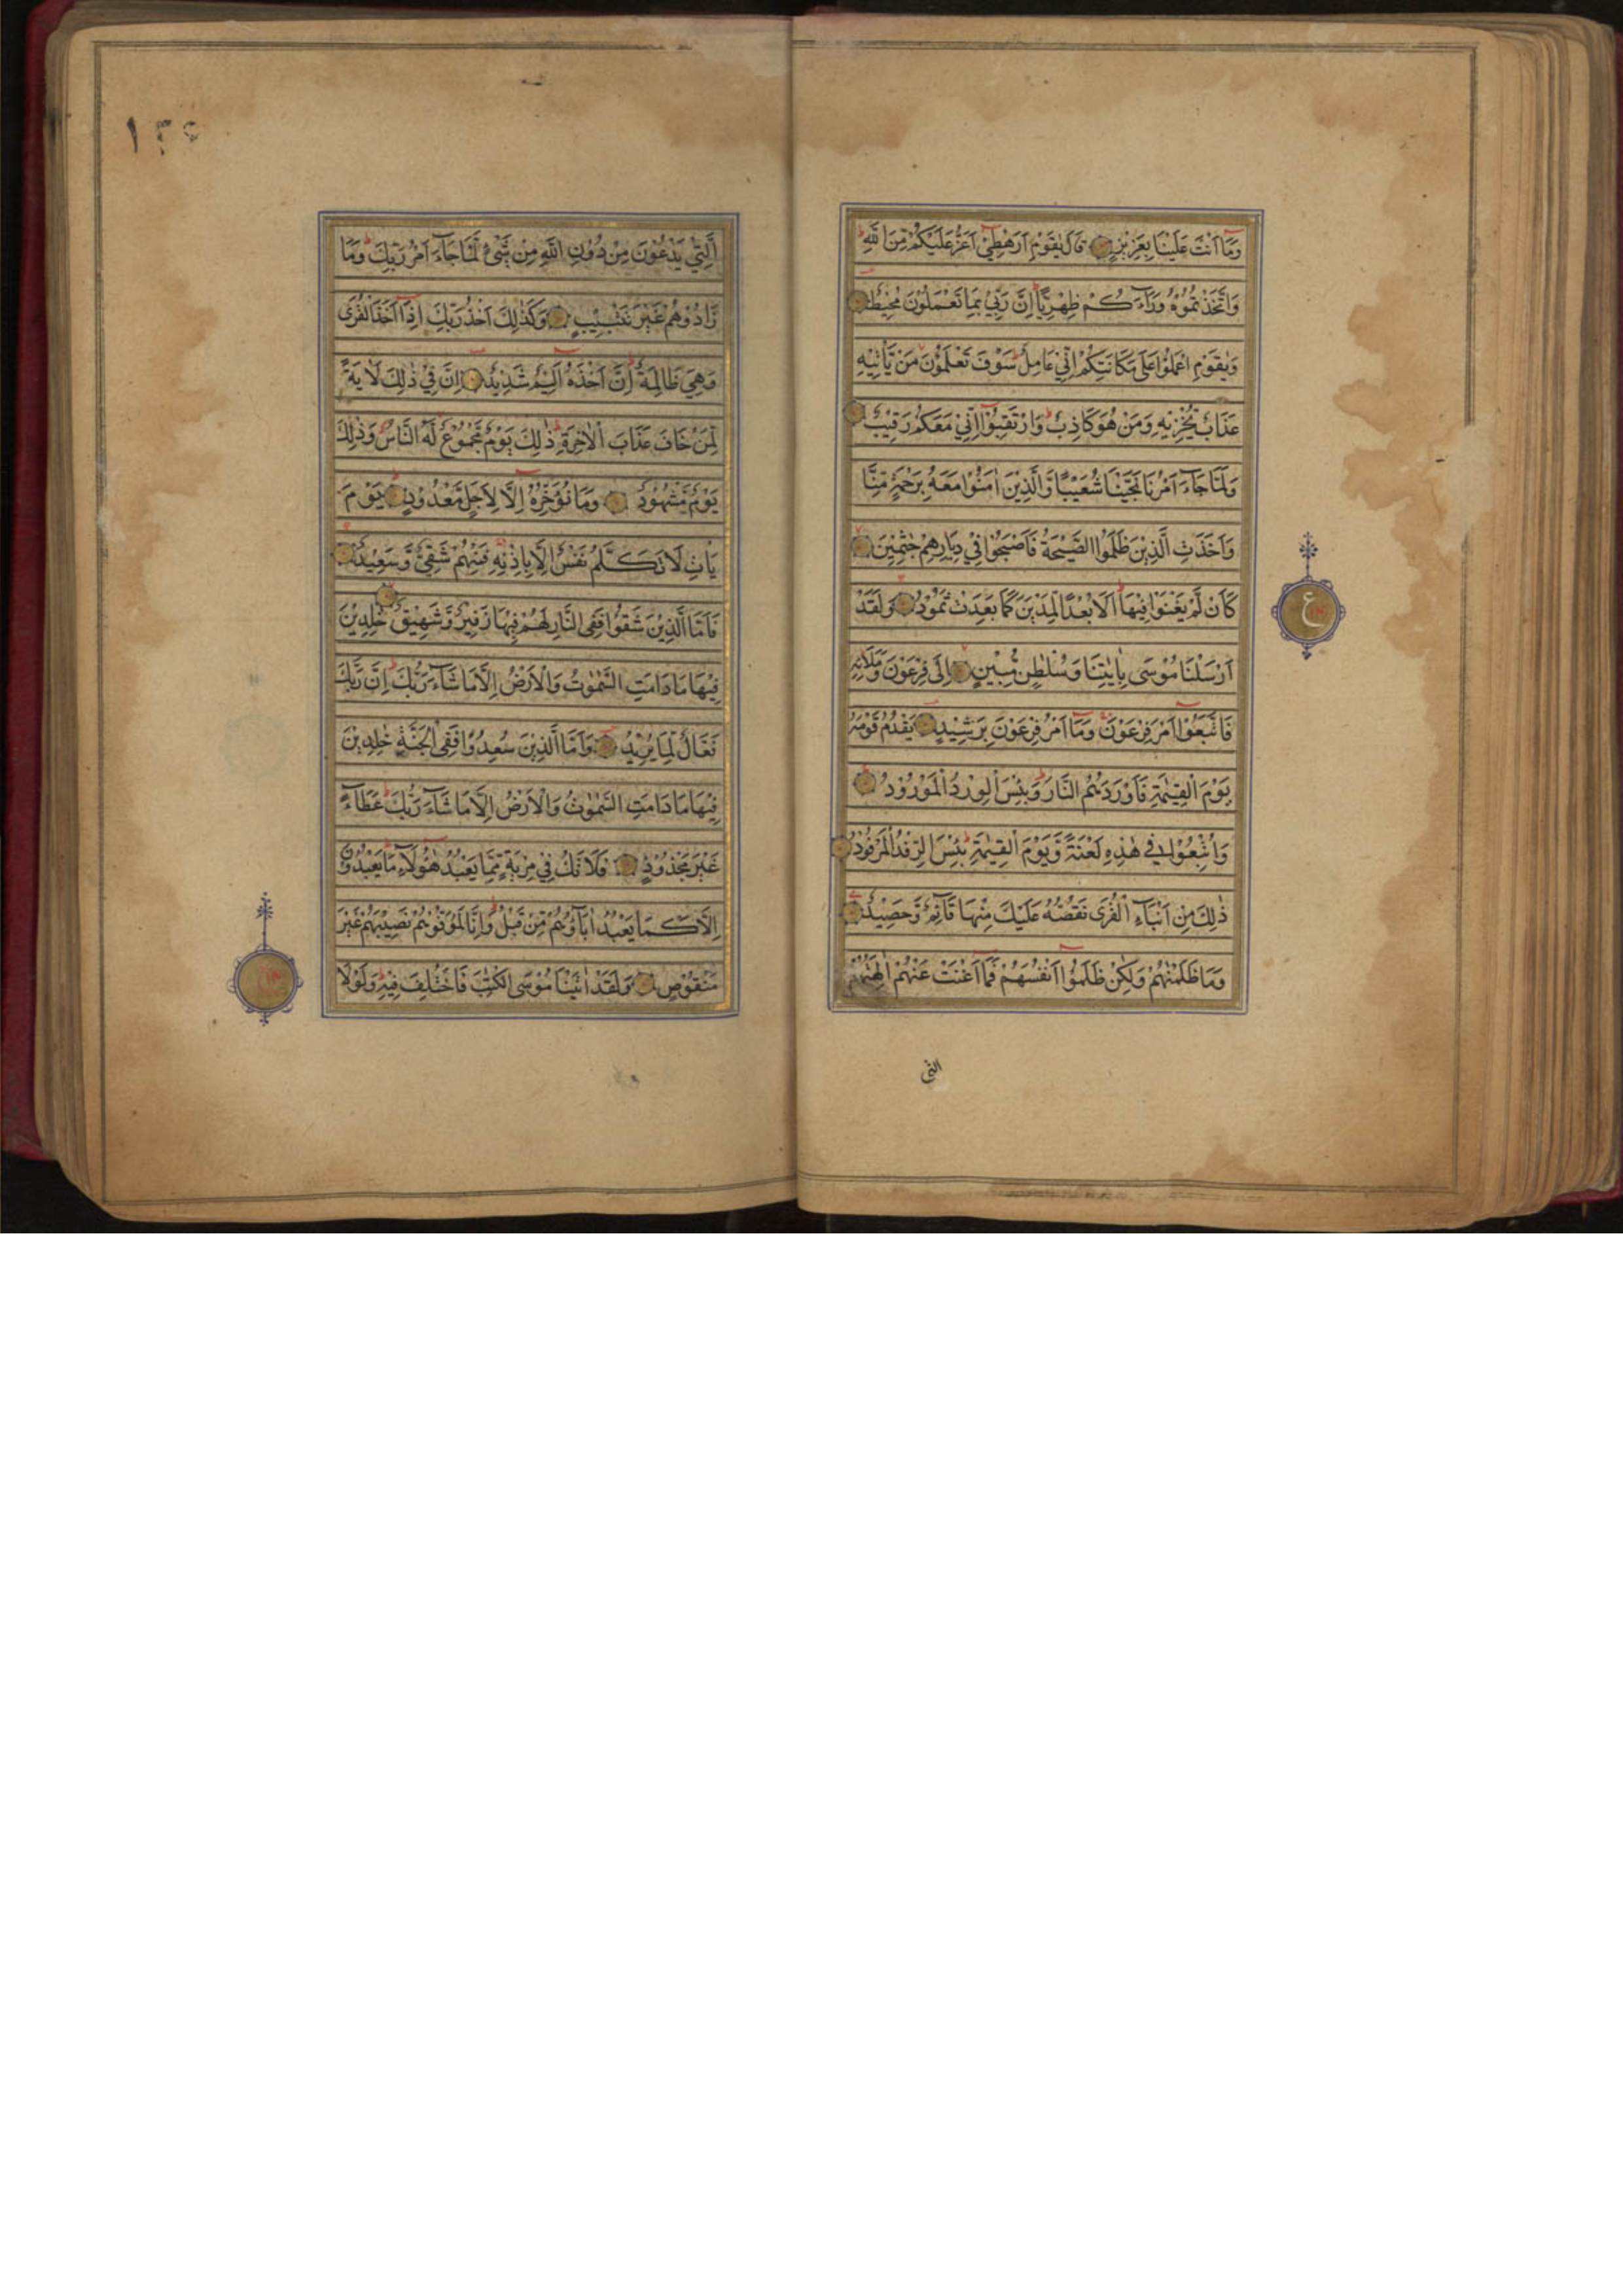 وَمَا اَنْتَ عَلَيْنَا بِعَزِيْزٍ قَالَ يٰقَوْمِ اَرَهْطِيْ اَعَزُّ عَلَيْكُمْ مِّنَ اللّٰهِ
وَاتَّخَذْتُمُوْهُ وَرَآءَكُمْ ظِهْرِيًّا اِنَّ رَبِّيْ بِمَا تَعْمَلُوْنَ مُحِيْطٌ
وَيٰقَوْمِ اعْمَلُوْا عَلٰى مَكَانَتِكُمْ اِنِّيْ عَامِلٌ سَوْفَ تَعْلَمُوْنَ مَنْ يَّاْتِيْهِ
عَذَابٌ يُّخْزِيْهِ وَمَنْ هُوَ كَاذِبٌ وَارْتَقِبُوْا اِنِّيْ مَعَكُمْ رَقِيْبٌ
وَلَمَّا جَآءَ اَمْرُنَا نَجَّيْنَا شُعَيْبًا وَّالَّذِيْنَ اٰمَنُوْا مَعَهُ بِرَحْمَةٍ مِّنَّا
وَاَخَذَتِ الَّذِيْنَ ظَلَمُوا الصَّيْحَةُ فَاَصْبَحُوْا فِيْ دِيَارِهِمْ جٰثِمِيْنَ
كَاَنْ لَّمْ يَغْنَوْا فِيْهَا اَلَا بُعْدًا لِّمَدْيَنَ كَمَا بَعِدَتْ ثَمُوْدُ وَلَقَدْ
اَرْسَلْنَا مُوْسٰى بِاٰيٰتِنَا وَسُلْطٰنٍ مُّبِيْنٍ اِلٰى فِرْعَوْنَ وَمَلَائِهِ
فَاتَّبَعُوْا اَمْرَ فِرْعَوْنَ وَمَا اَمْرُ فِرْعَوْنَ بِرَشِيْدٍ يَقْدُمُ قَوْمَهُ
يَوْمَ الْقِيٰمَةِ فَاَوْرَدَهُمُ النَّارَ وَبِئْسَ الْوِرْدُ الْمَوْرُوْدُ
وَاُتْبِعُوْا فِيْ هٰذِهِ لَعْنَةً وَّيَوْمَ الْقِيٰمَةِ بِئْسَ الرِّفْدُ الْمَرْفُوْدُ
ذٰلِكَ مِنْ اَنْبَآءِ الْقُرٰى نَقُصُّهُ عَلَيْكَ مِنْهَا قَآئِمٌ وَّحَصِيْدٌ
وَمَا ظَلَمْنٰهُمْ وَلٰكِنْ ظَلَمُوْا اَنْفُسَهُمْ فَمَا اَغْنَتْ عَنْهُمْ اٰلِهَتُهُمُ
التى
ع
الَّتِيْ يَدْعُوْنَ مِنْ دُوْنِ اللّٰهِ مِنْ شَيْءٍ لَّمَّا جَآءَ اَمْرُ رَبِّكَ وَمَا
زَادُوْهُمْ غَيْرَ تَتْبِيْبٍ وَكَذٰلِكَ اَخْذُ رَبِّكَ اِذَا اَخَذَ الْقُرٰى
وَهِيَ ظَالِمَةٌ اِنَّ اَخْذَهُ اَلِيْمٌ شَدِيْدٌ اِنَّ فِيْ ذٰلِكَ لَاٰيَةً
لِّمَنْ خَافَ عَذَابَ الْاٰخِرَةِ ذٰلِكَ يَوْمٌ مَّجْمُوْعٌ لَّهُ النَّاسُ وَذٰلِكَ
يَوْمٌ مَّشْهُوْدٌ وَمَا نُؤَخِّرُهُ اِلَّا لِاَجَلٍ مَّعْدُوْدٍ يَوْمَ
يَاْتِ لَا تَكَلَّمُ نَفْسٌ اِلَّا بِاِذْنِهِ فَمِنْهُمْ شَقِيٌّ وَّسَعِيْدٌ
فَاَمَّا الَّذِيْنَ شَقُوْا فَفِى النَّارِ لَهُمْ فِيْهَا زَفِيْرٌ وَّشَهِيْقٌ خٰلِدِيْنَ
فِيْهَا مَا دَامَتِ السَّمٰوٰتُ وَالْاَرْضُ اِلَّا مَا شَآءَ رَبُّكَ اِنَّ رَبَّكَ
فَعَّالٌ لِّمَا يُرِيْدُ وَاَمَّا الَّذِيْنَ سُعِدُوْا فَفِى الْجَنَّةِ خٰلِدِيْنَ
فِيْهَا مَا دَامَتِ السَّمٰوٰتُ وَالْاَرْضُ اِلَّا مَا شَآءَ رَبُّكَ عَطَآءً
غَيْرَ مَجْذُوْذٍ فَلَا تَكُ فِيْ مِرْيَةٍ مِّمَّا يَعْبُدُ هٰؤُلَآءِ مَا يَعْبُدُوْنَ
اِلَّا كَمَا يَعْبُدُ اٰبَآؤُهُمْ مِّنْ قَبْلُ وَاِنَّا لَمُوَفُّوْهُمْ نَصِيْبَهُمْ غَيْرَ
مَنْقُوْصٍ وَلَقَدْ اٰتَيْنَا مُوْسَى الْكِتٰبَ فَاخْتُلِفَ فِيْهِ وَلَوْلَا